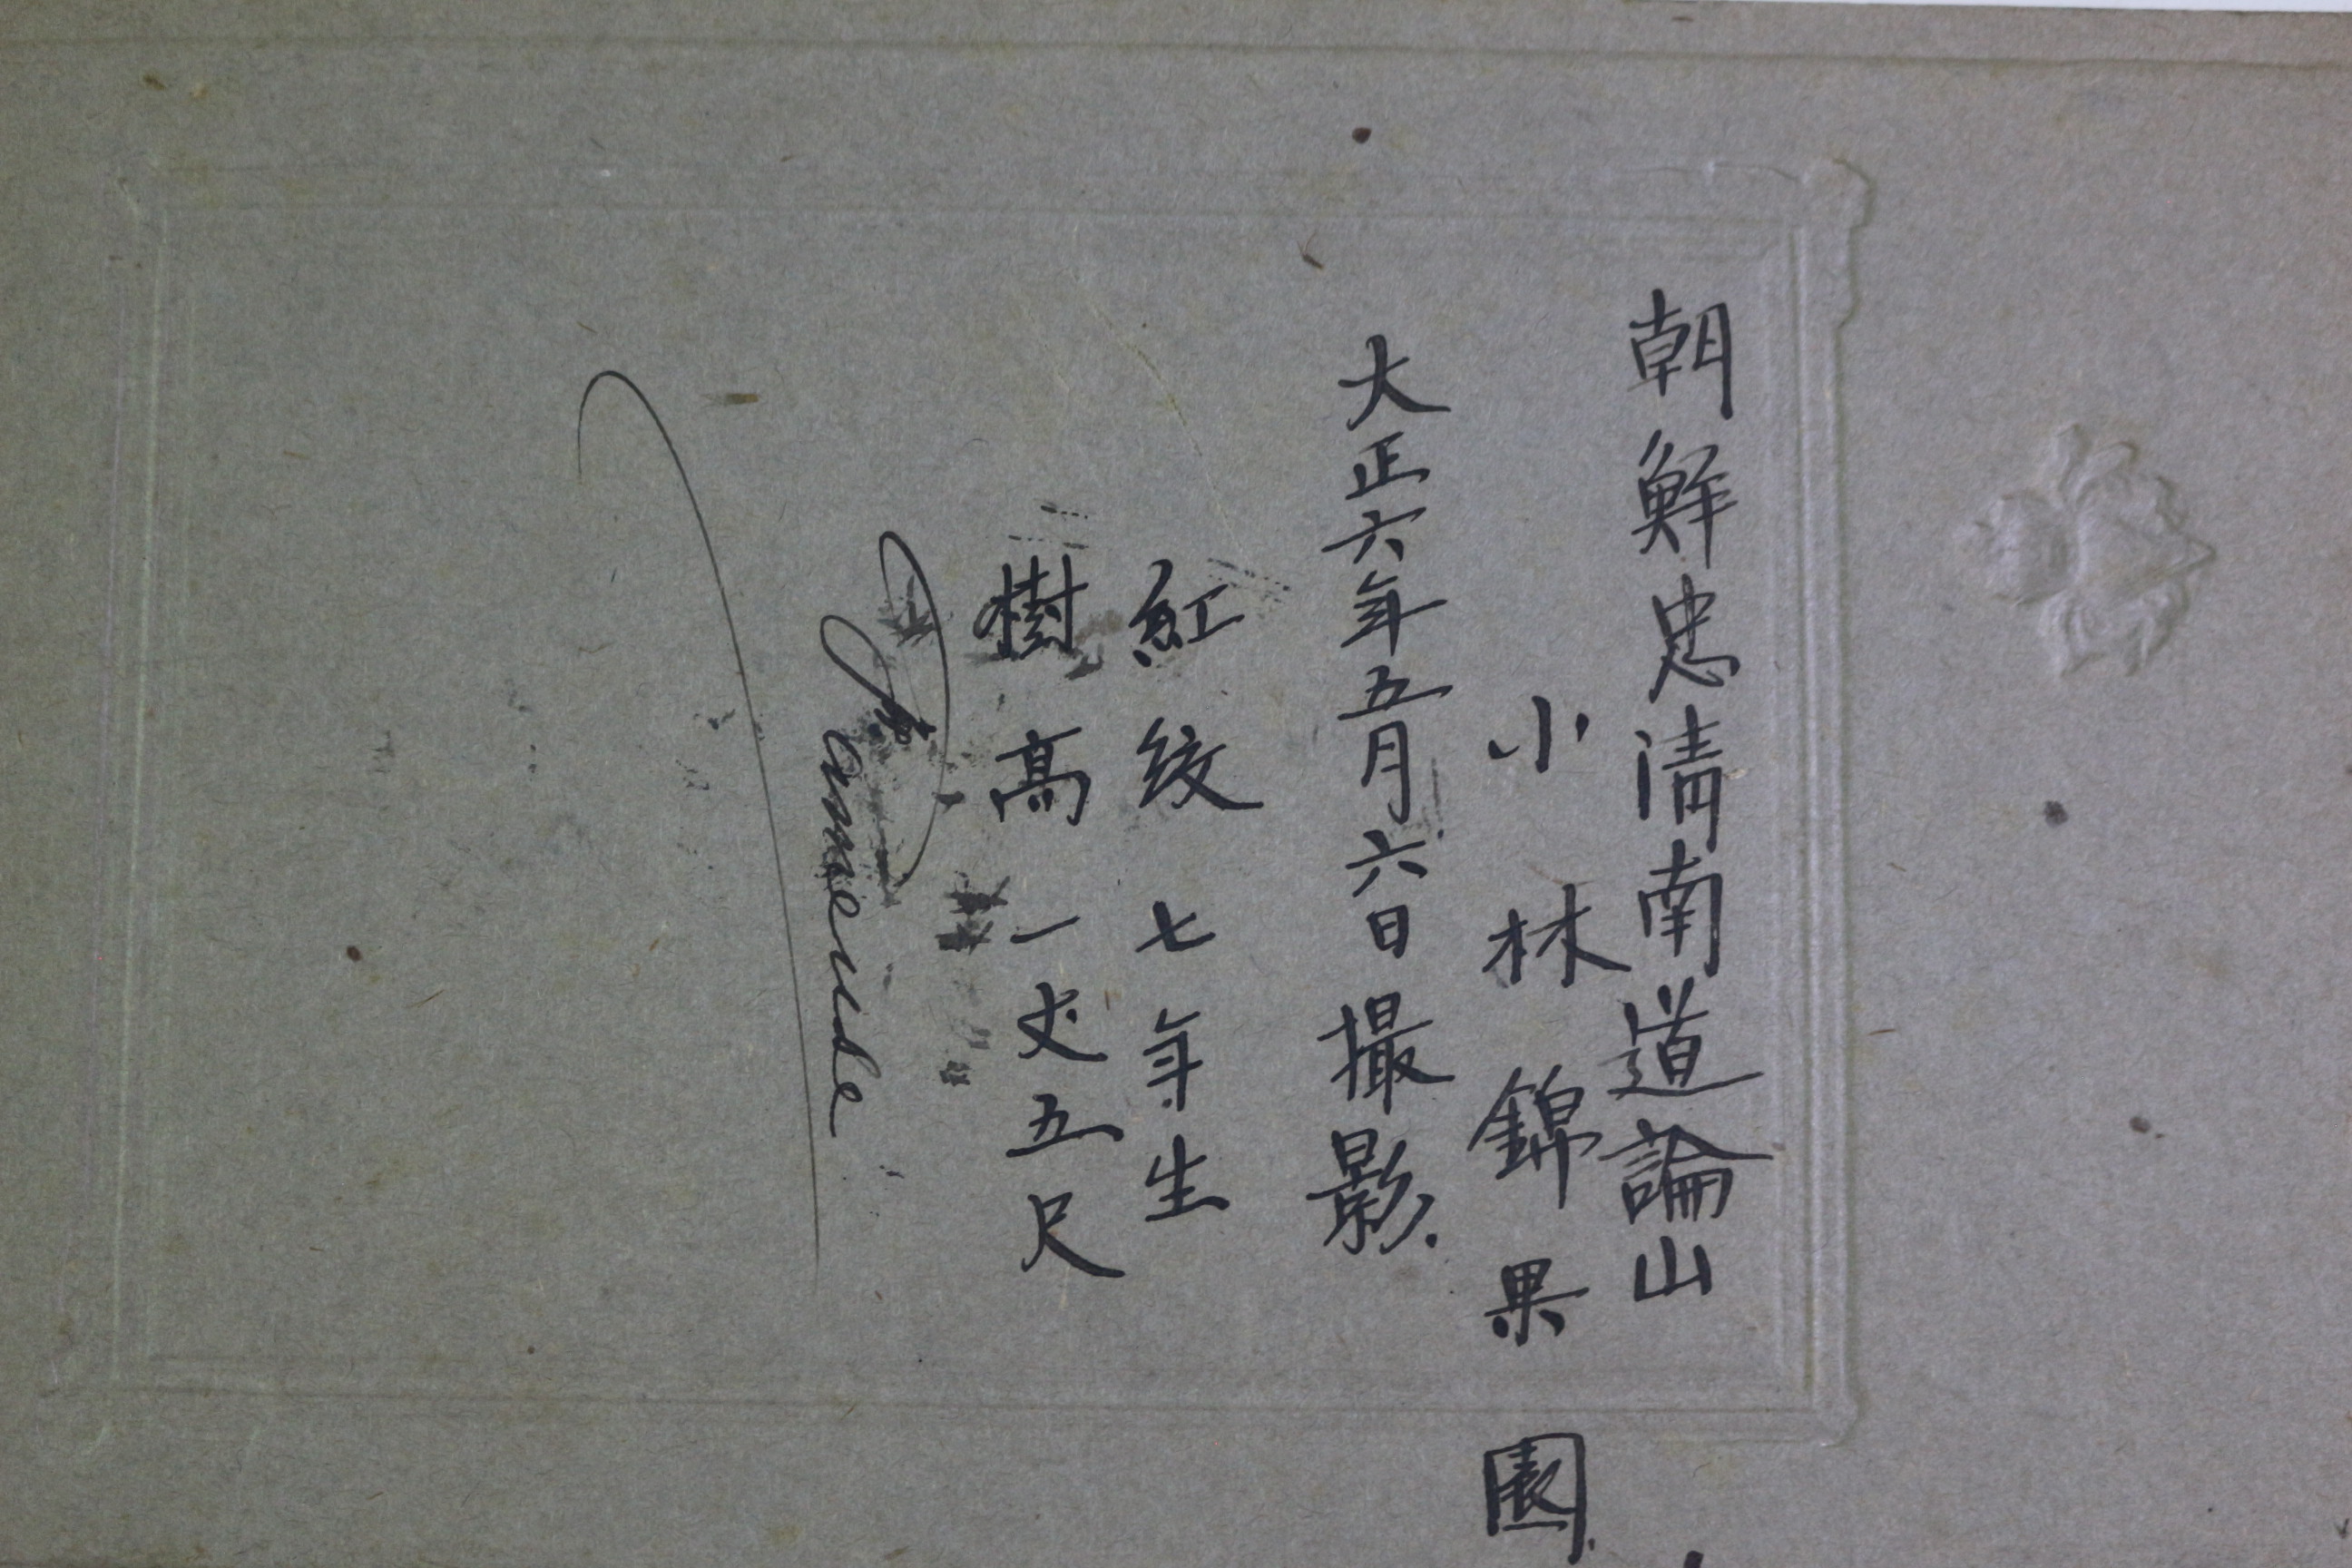 朝鮮忠淸南道論山
小林錦果園.
大正六年五月六日撮影.
紅絞七年生
樹高一丈五尺
Fameuse